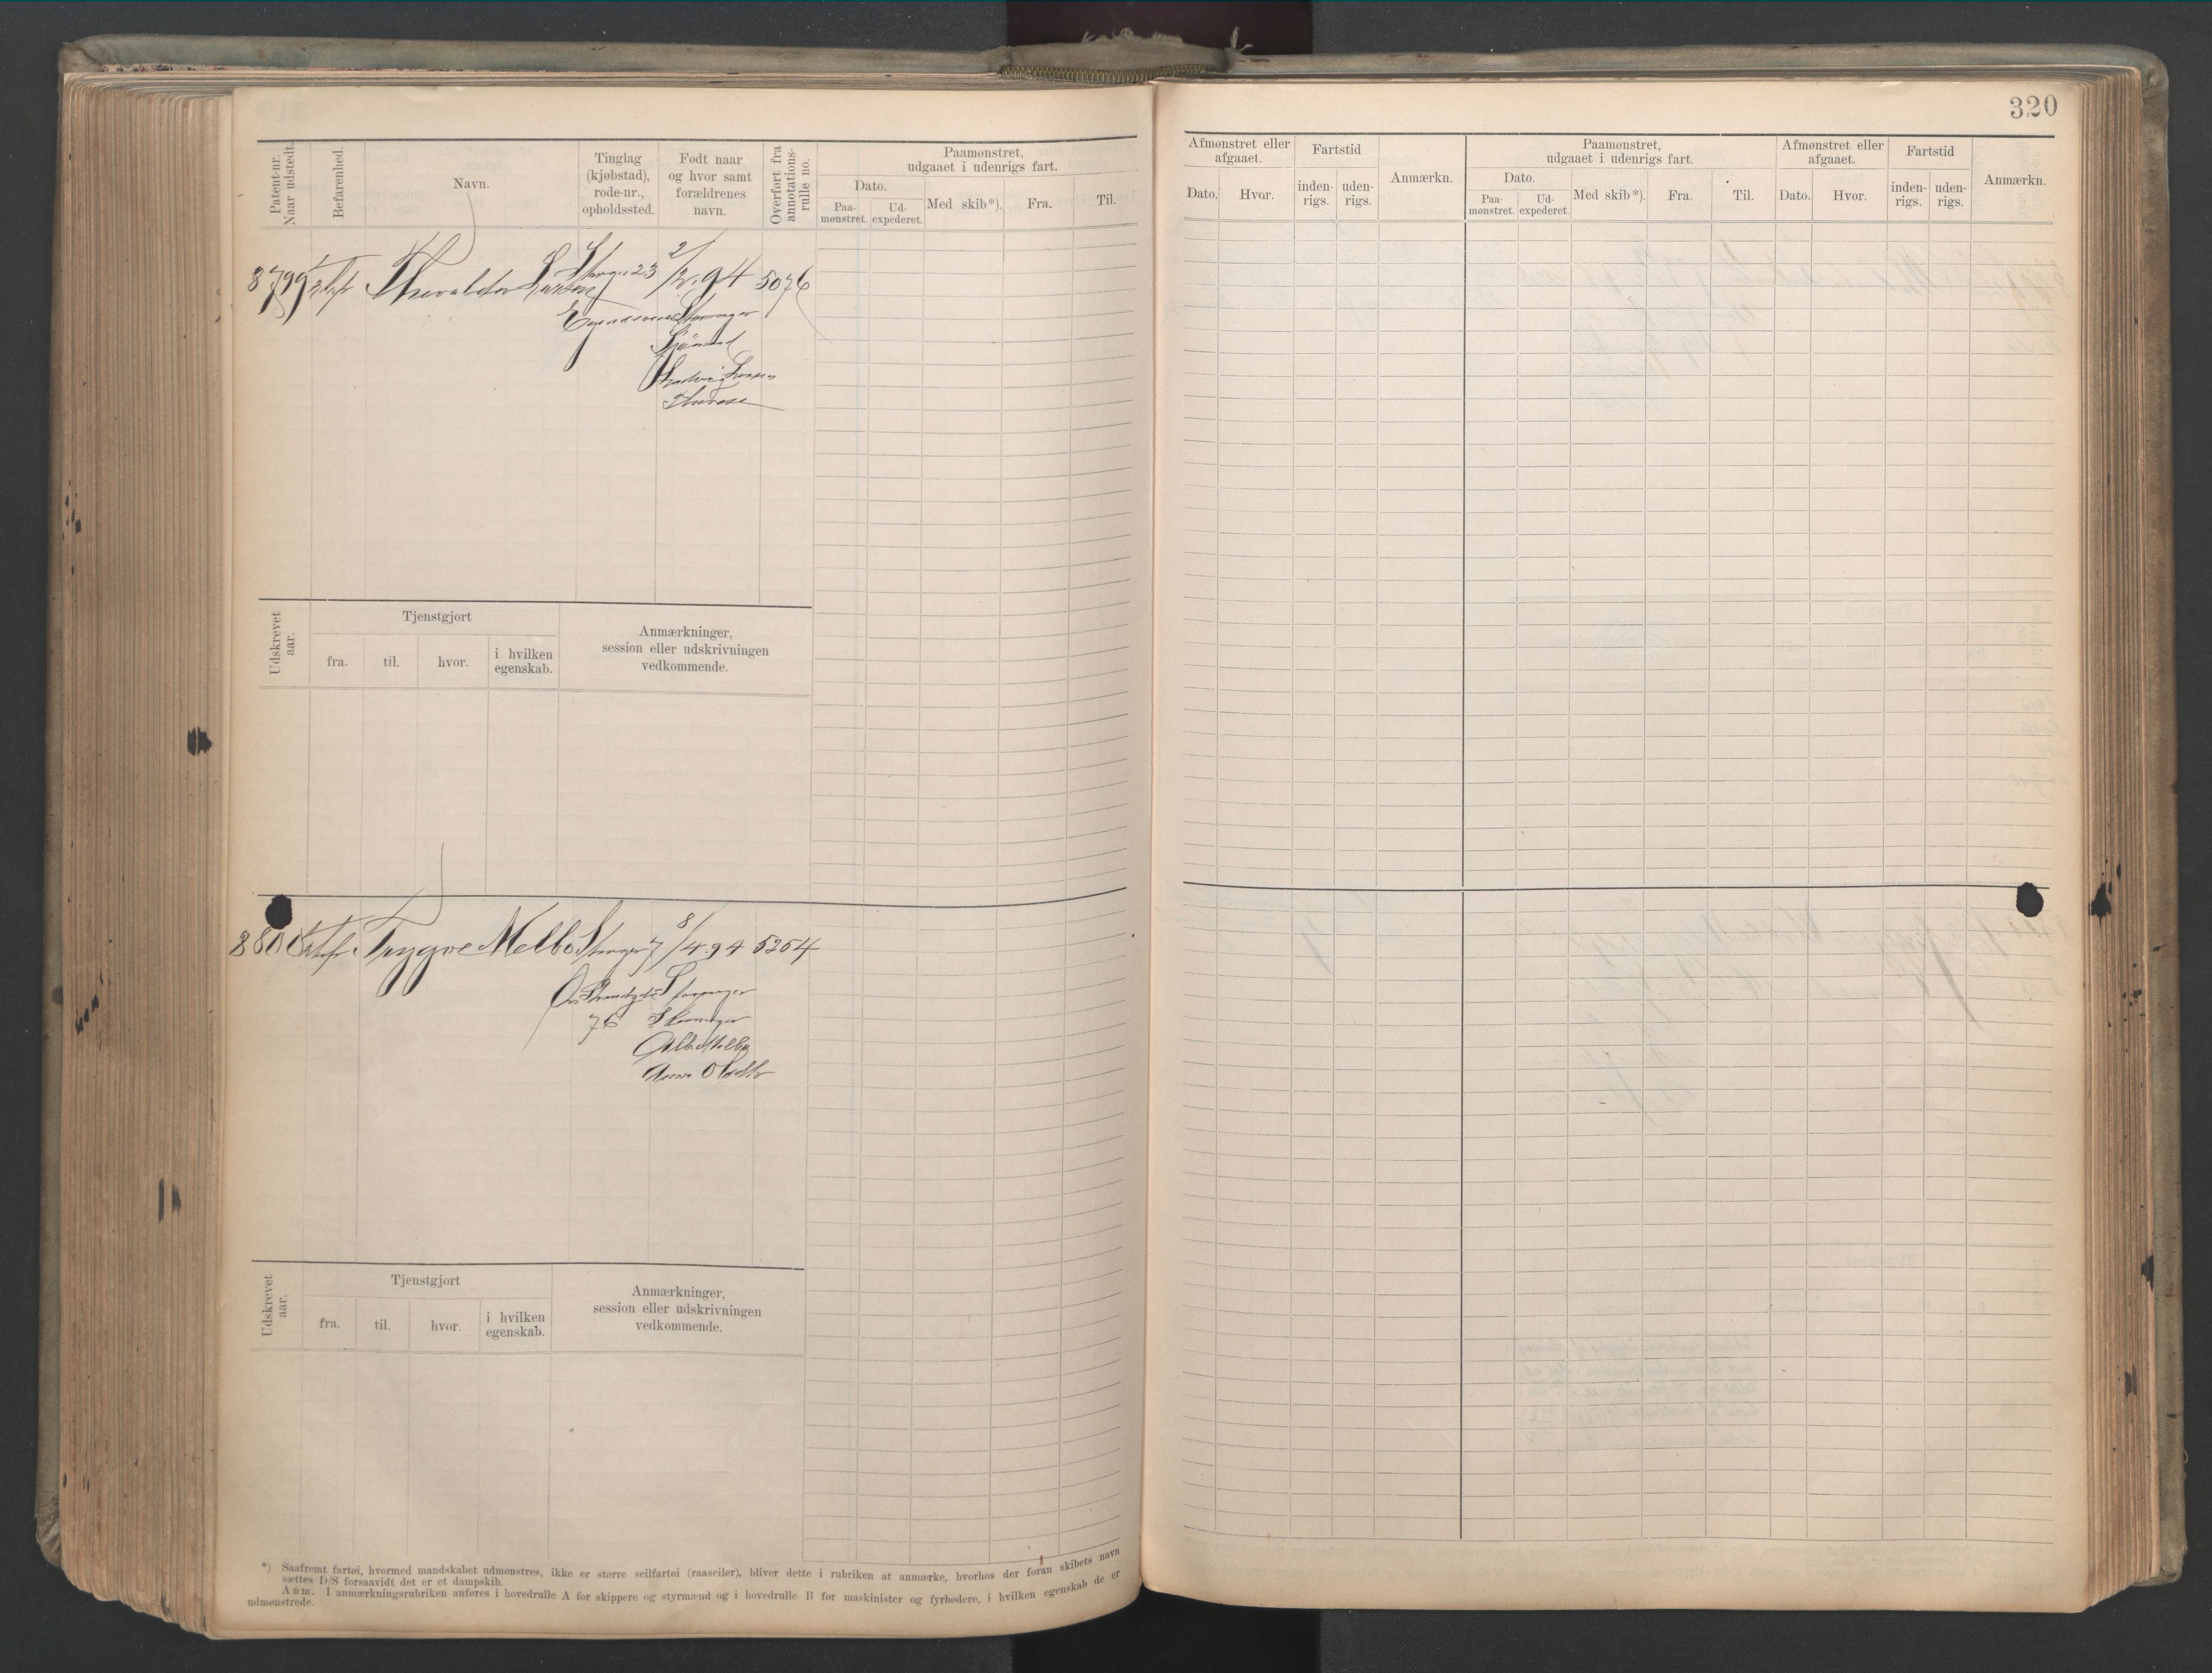 320
Patent-nr. Naar udstedt.
Befarenhed.
Navn.
Tinglag (kjøbstad), rode-nr., opholdssted.
Født naar og hvor samt forældrenes navn.
Overført fra annotations-rulle no.
Paamønstret, udgaaet i udenrigs fart.
Dato.
Paa-mønstret.
Ud-expederet.
Med skib*).
Fra.
Til.
Afmønstret eller afgaaet.
Dato.
Hvor.
Fartstid
inden-rigs.
uden-rigs.
Anmærkn.
Paamønstret, udgaaet i udenrigs fart.
Dato.
Paa-mønstret.
Ud-expederet.
Med skib*).
Fra.
Til.
Afmønstret eller afgaaet.
Dato.
Hvor.
Fartstid
inden-rigs.
uden-rigs.
Anmærkn.
8799
23 2/2.94 5076
Stavanger
Udskrevet aar.
Tjenstgjort
fra.
til.
hvor.
i hvilken egenskab.
Anmærkninger, session eller udskrivningen vedkommende.
8800 Trygve Melbo 7 8/4.94 5254
Stavanger
76 Stavanger
Udskrevet aar.
Tjenstgjort
fra.
til.
hvor.
i hvilken egenskab.
Anmærkninger, session eller udskrivningen vedkommende.
*) Saafremt fartøi, hvormed mandskabet udmønstres, ikke er større seilfartøi (raaseiler), bliver dette i rubriken at anmærke, hvorhos der foran skibets navn
sættes D/S forsaavidt det er et dampskib.
Anm. I anmærkningsrubriken anføres i hovedrulle A for skippere og styrmænd og i hovedrulle B for maskinister og fyrbødere, i hvilken egenskab de er
udmønstrede.